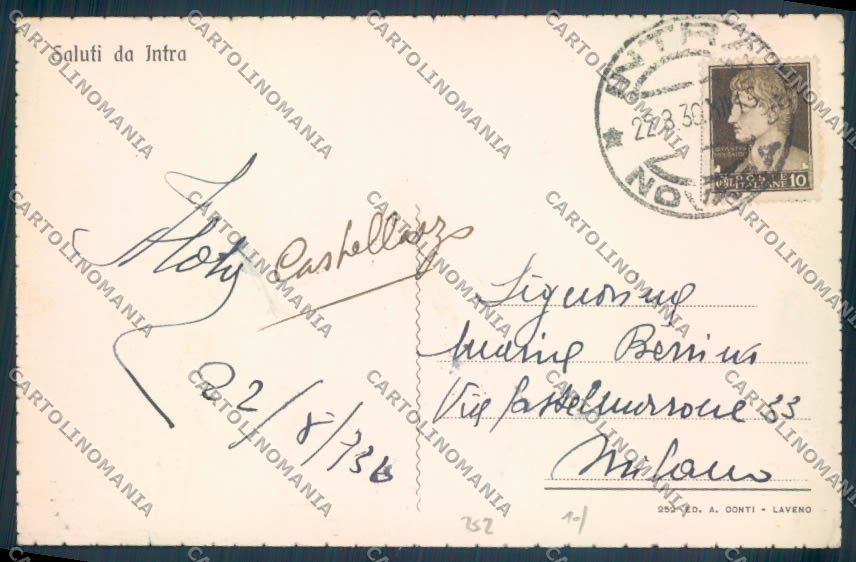 Saluti da Intra
INTRA
22.8.36
NOVARA
POSTE
ITALIANE 10
Castellanza
22/8/936
Signorina
Maria
Via Castelmorrone 33
Milano
252 - ED. A. CONTI - LAVENO
252 10/
CARTOLINOMANIA